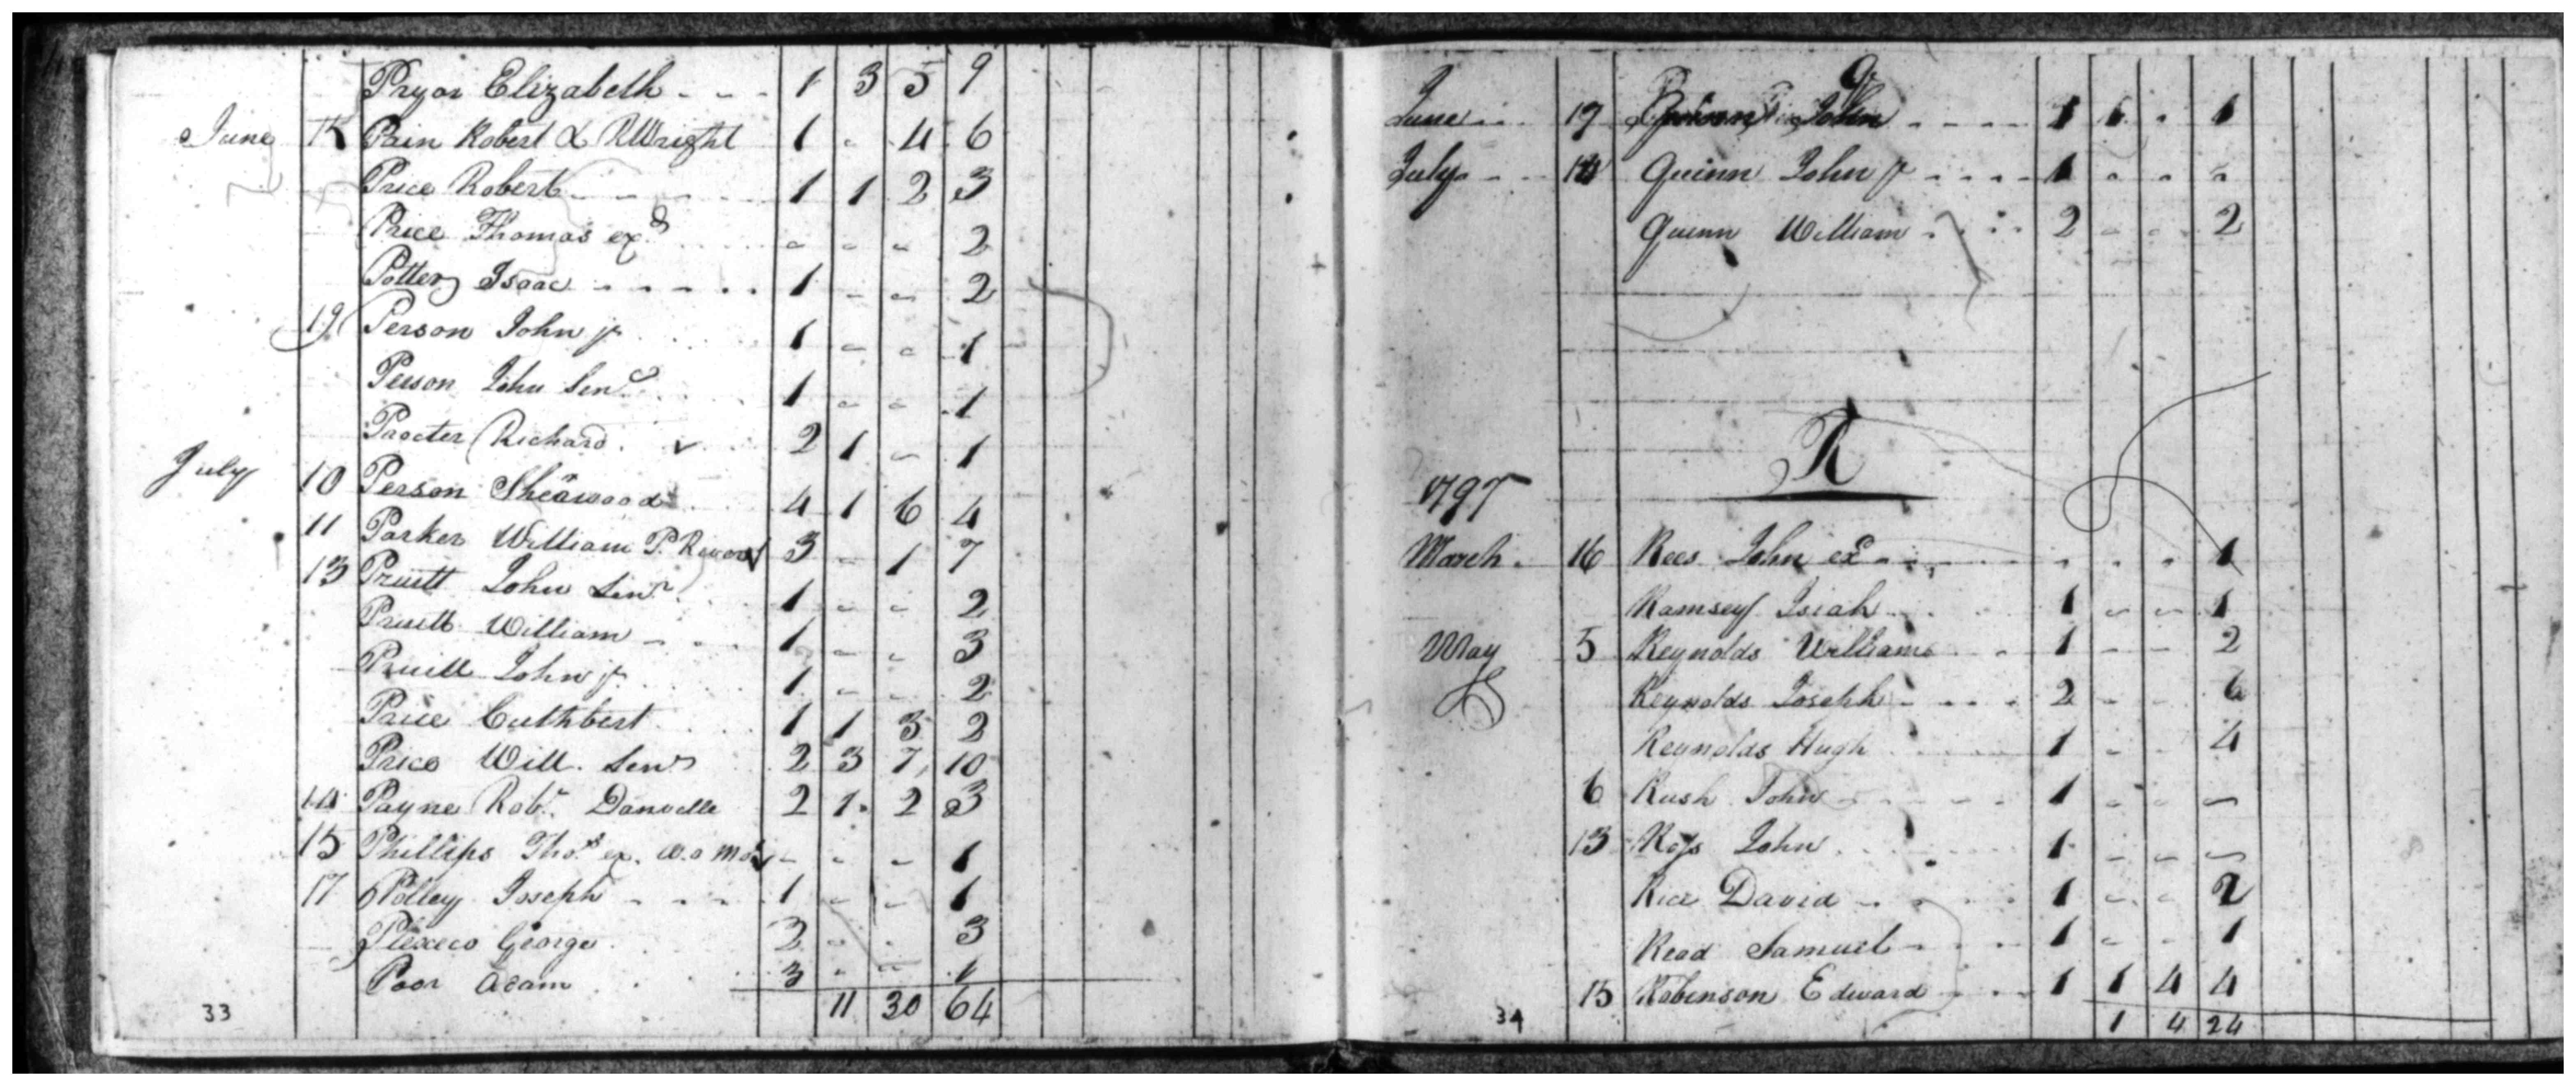 Pryor Elizabeth - - - 1 3 5 9
June Pain Robert & R Wright 1 - 4 6
Price Robert - - - 1 1 2 3
Price Thomas exd - - - 2
Potter Isaac - - - - - 1 - - 2
19 Person John jr 1 - - 1
Person John Senr 1 - - 1
Procter Richard 2 1 - 1
July 10 Person Shearwood 4 1 6 4
11 Parker William P. 3 - 1 7
13 Pruitt John Senr 1 - - 2
Pruitt William - - 1 - - 3
Pruitt John jr 1 - - 2
Price Cuthbert 1 1 3 2
Price Will. Senr 2 3 7 10
14 Payne Robt. Danville 2 1 2 3
15 Phillips Thos. ex. - - - 1
17 Polley Joseph - - - 1 - - 1
George 2 - - 3
Poor Adam 3 - - 1
11 30 64
33
Q
June 19 John - - - - 1 1 - 1
July - - Quinn John jr - - - - 1 - - -
Quinn William - - - 2 - - 2
R
1797
March 16 Rees John ex - - - - - 1
Ramsey Isiah 1 - - 1
May 5 Reynolds William 1 - - 2
Reynolds Joseph - - - - 2 - - 6
Reynolds Hugh 1 - - 4
6 Rush John - - - - 1 - - -
13 John 1 - - -
Rice David - - 1 - - 2
Read Samuel - - - 1 - - 1
15 Robinson Edward - - - 1 1 4 4
1 4 24
34